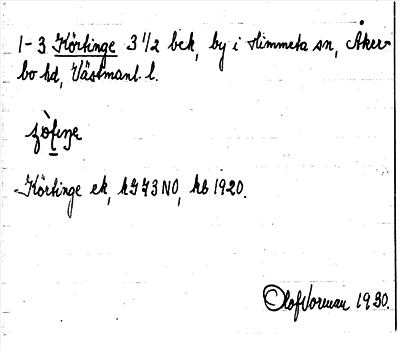 1-3 Körtinge 3 1/2 bek, by i Himmeta sn, Åker-
bo hd, Västmanl. l.
Körtinge ek, hg 73 NO, kb 1920.
Olof Norman 1930.